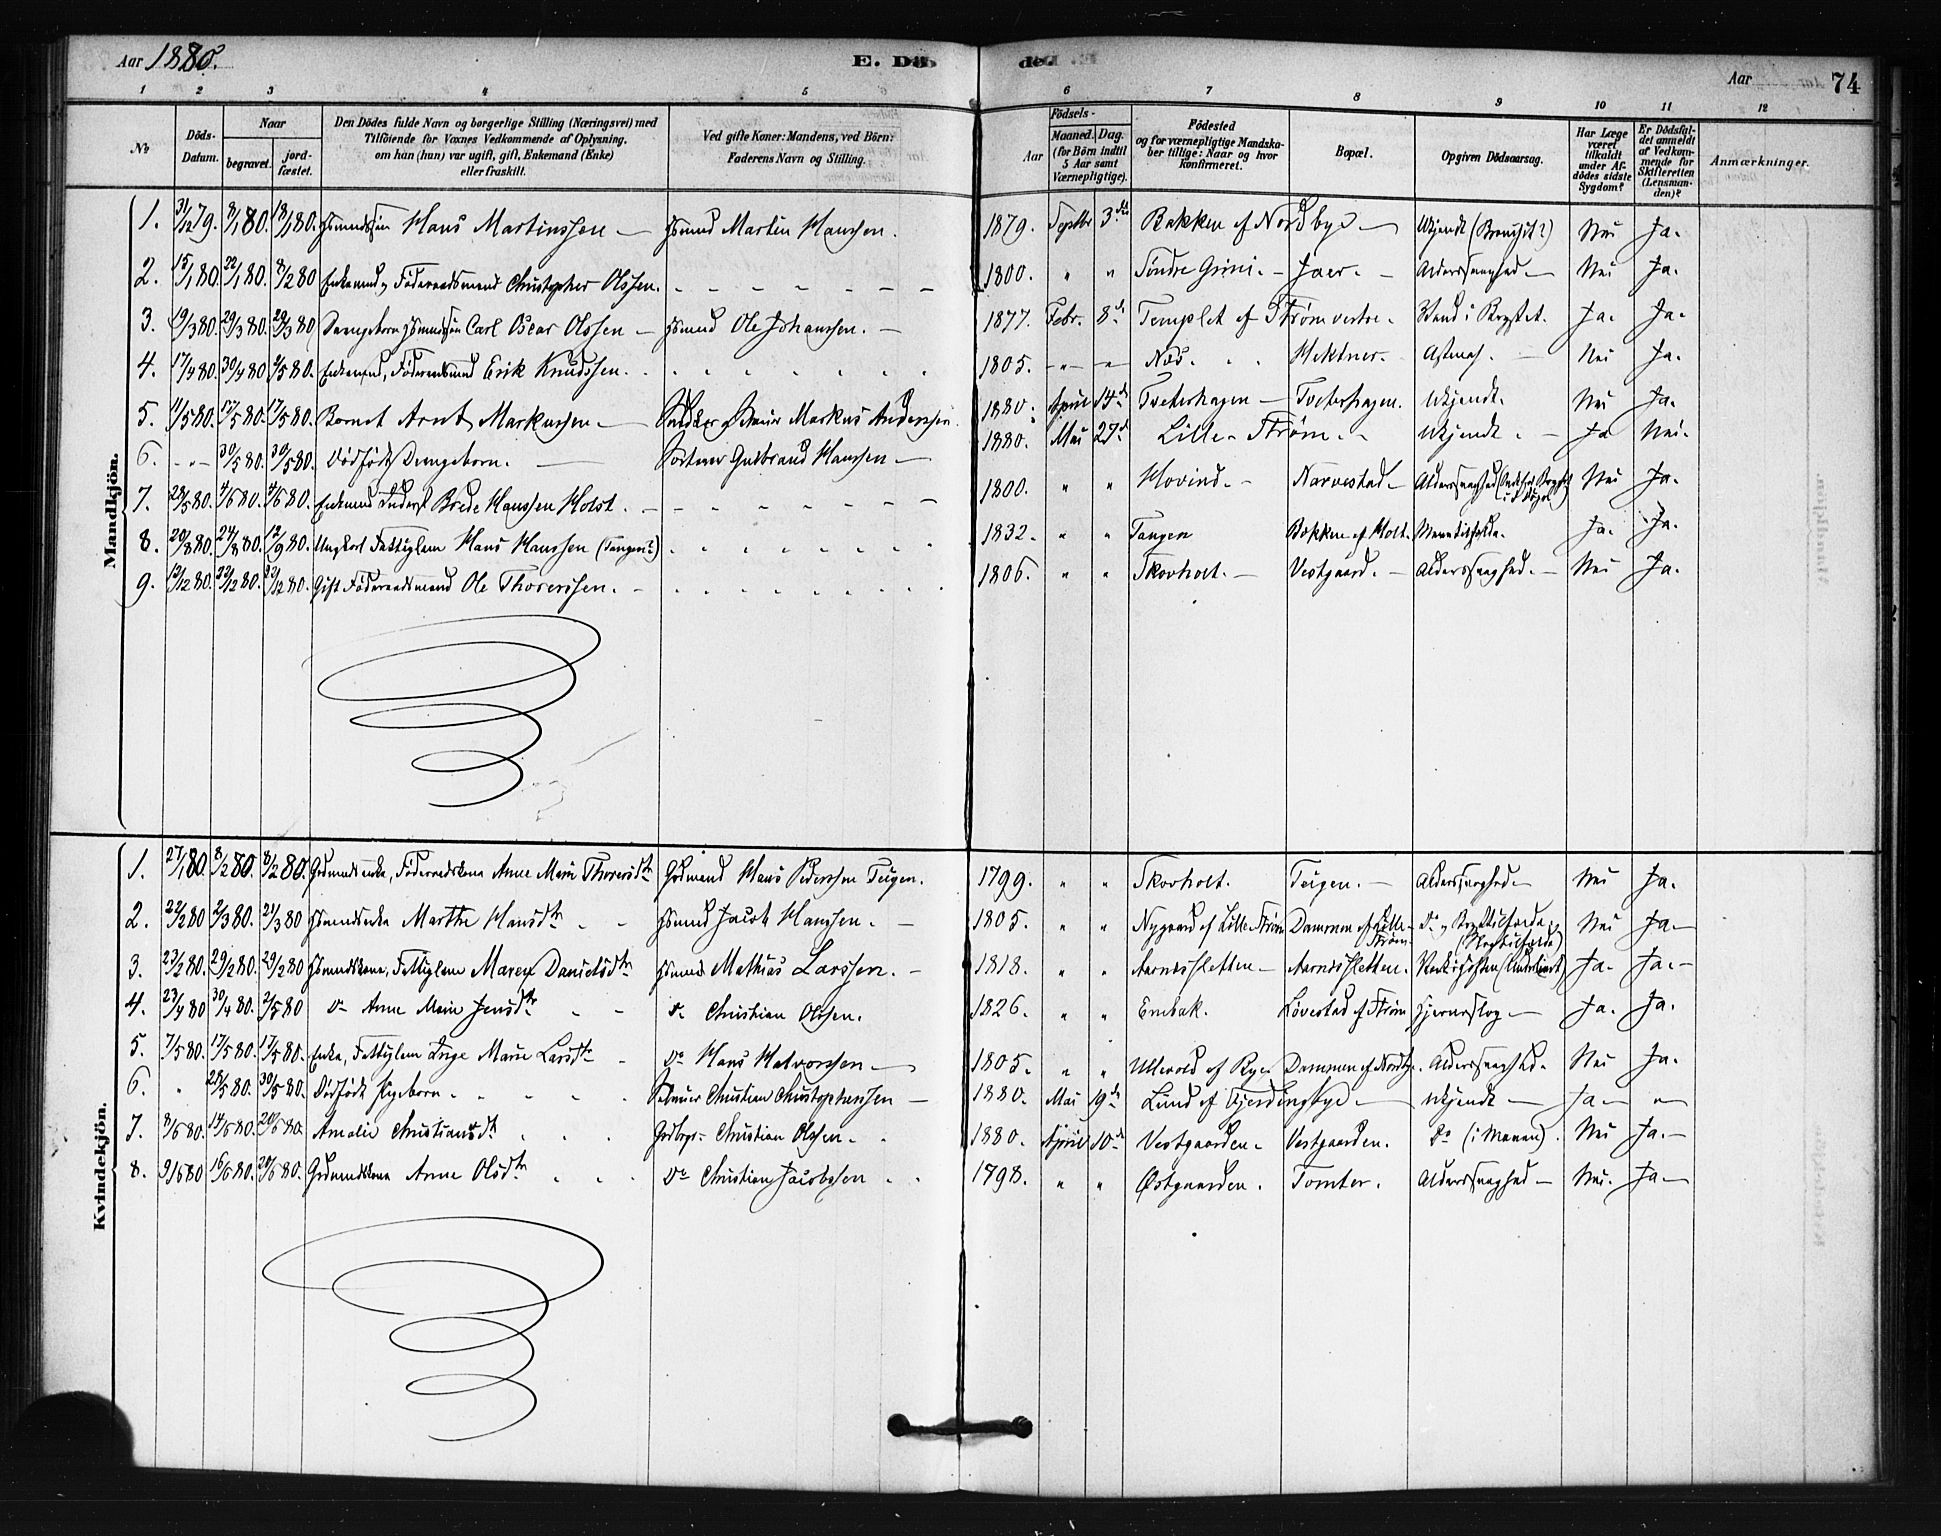 Aar 1880.
E. Döde. Aar 74
1 2 3 4 5 6 7 8 9 10 11 12
No
Döds-Datum.
Naar
begravet.
jord-fæstet.
Den Dödes fulde Navn og borgerlige Stilling (Næringsvei) med
Tilföiende for Voxnes Vedkommende af Oplysning.
om han (hun) var ugift, gift, Enkemand (Enke)
eller fraskilt.
Ved gifte Koner: Mandens, ved Börn:
Faderens Navn og Stilling.
Födsels-
Aar
Maaned. Dag.
(for Börn indtil
5 Aar samt
Værnepligtige).
Födested
og for værnepligtige Mandska-
ber tillige: Naar og hvor
konfirmeret.
Bopæl.
Opgiven Dödsaarsag.
Har Læge
været
tilkaldt
under Af-
dödes sidste
Sygdom?
Er Dödsfal-
det anmeldt
af Vedkom-
mende for
Skifteretten
(Lensman-
den)?
Anmærkninger.
Mandkjön.
1. 31/12 79. 8/1 80. 18/1 80. Hans Martinssen — Martin Hanssen. 1879. Septbr 3die Bakken af Nordbye — Ukjendt Nei Ja.
2. 15/1 80. 22/1 80. 8/2 80 Enkemand, Föderaadsmand Christopher Olssen. 1800. " " Søndre Grini. — Jaer. — Alderssvaghed — Nei Ja.
3. 19/3 80. 29/3 80. 29/3 80 Drengebarn Carl Oscar Olssen — Ole Johanssen. — 1877. Febr. 8de Templet af Strøm vestre. — Vand i Brystet. Ja. Ja.
4. 17/4 80. 30/4 80 2/5 80. Enkemand, Föderaadsmand Erik Knudssen. 1805. Næs. Hektner. Nei Ja.
5. 11/5 80. 17/5 80. 17/5 80. Barnet Arnt Markussen — Markus Anderssen. 1880. April 14de Tveterhagen — Tveterhagen. Ukjendt. Nei Ja.
6. - " - 30/5 80. 30/5 80. Dödfødt Drengebarn. — Gulbrand Hanssen — 1880. Mai 27de Lille-Strøm. — Ukjendt. — Ja Nei.
7. 28/5 80. 4/6 80. 4/6 80. Enkemand Brede Hanssen Holst. — 1800. " " Hovind. — Narvestad — Alderssvaghed Nei Ja.
8. 20/8 80. 24/8 80. 12/9 80. Ungkarl Fattiglem Hans Hanssen (Tangen?) 1832. " " Tangen Bakken af Holt. Ja. Ja.
9. 12/12 80. 22/12 80. 22/12 80. Gift Föderaadsmand Ole Thorerssen. — 1806. " " Skovholt. — Vestgaard. — Alderssvaghed. — Nei Ja.
Kvindekjön.
1. 27/1 80. 8/2 80. 8/2 80. Gaardmandsenke, Föderaadskone Anne Marie Thorersdtr Gaardmand Hans Pederssen Teigen. 1799. " " Skovholt. Teigen. — Alderssvaghed — Nei Ja.
2. 22/2 80 2/3 80. 21/3 80 Marthe Hansdtr Jacob Hanssen. — 1805. " " Nygaard af Lille-Strøm Dammen af Lille-Strøm Nei Ja —
3. 23/2 80. 29/2 80. 29/2 80 Fattiglem Maren Danielsdtr Mathias Larssen. — 1818. " " Aarnessletten — Aarnessletten. Ja. Ja. —
4. 23/4 80 30/4 80. 2/5 80 Do Anne Marie Jensdtr Do Christian Olssen. 1826. " " Embak. Løvestad af Strøm Hjerneslag — Ja. Ja.
5. 7/5 80. 17/5 80. 17/5 80. Enke, Fattiglem Inge Marie Larsdtr Do Hans Halvorssen — 1805. " " Ullevold af Rye. Dammen af Nordby. Alderssvaghed. Nei Ja.
6. " 28/5 80. 30/5 80. Dödfødt Pigebarn. Christian Christopherssen — 1880. Mai 19de Lund af Gjerdingbye — Ukjendt — Ja — " —
7. 8/6 80. 14/6 80. 20/6 80. Amalie Christiansdtr Christian Olssen. 1880. April 10de Vestgaarden. Vestgaarden. Do (i Maven). Nei Ja. —
8. 9/6 80 16/6 80. 20/6 80. Gaardmandskone Anne Olsdtr Do Christian Jacobssen 1798. " " Østgaarden. Tomter. Alderssvaghed — Nei. Ja —